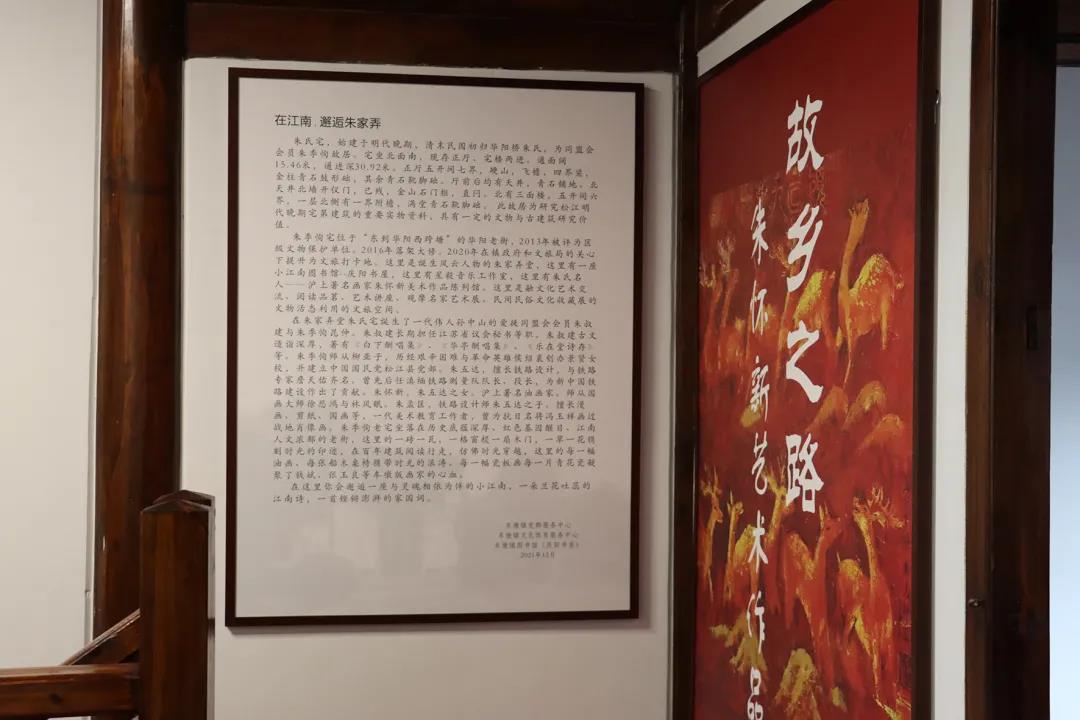 在江南．邂逅朱家弄
朱氏宅，始建于明代晚期，清末民国初归华阳桥朱氏，为同盟会
会员朱季恂故居。宅坐北面南，现存正厅、宅楼两进。通面阔
15.46米，通进深30.92米。正厅五开间七界，硬山，飞檐，四界梁，
金柱青石鼓形础，其余青石鞁脚础。厅前后均有天井，青石铺地。北
天井北墙开仪门，已残，金山石门框，直闩。北有三面楼。五开间六
界，一层北侧有一界附檐，满堂青石鞁脚础。此故居为研究松江明
代晚期宅第建筑的重要实物资料，具有一定的文物与古建筑研究价
值。
朱季恂宅位于“东到华阳西跨塘”的华阳老街，2013年被评为区
级文物保护单位。2016年落架大修。2020年在镇政府和文旅局的关心
下提升为文旅打卡地。这里是诞生风云人物的朱家弄堂，这里有一座
小江南图书馆--庆阳书屋，这里有星毅音乐工作室，这里有朱氏名
人——沪上著名画家朱怀新美术作品陈列馆。这里是融文化艺术交
流、阅读品茗、艺术讲座、观摩名家艺术展、民间民俗文化收藏展的
文物活态利用的文旅空间。
在朱家弄堂朱氏宅诞生了一代伟人孙中山的爱徒同盟会会员朱叔
建与朱季恂昆仲。朱叔建长期担任江苏省议会秘书等职，朱叔建古文
造诣深厚，著有《白下酬唱集》、《华亭酬唱集》、《乐在堂诗存》
等。朱季恂师从柳亚子，历经艰辛困难与革命英雄侯绍裘创办景贤女
校，并建立中国国民党松江县党部。朱五达，擅长铁路设计，与铁路
专家詹天佑齐名，曾先后任滇缅铁路测量队队长、段长，为新中国铁
路建设作出了贡献。朱怀新，朱五达之女。沪上著名油画家。师从国
画大师徐悲鸿与林风眠。朱孟臣，铁路设计师朱五达之子。擅长漫
画、剪纸、国画等，一代美术教育工作者，曾为抗日名将冯玉祥画过
战地肖像画。朱季恂老宅坐落在历史底蕴深厚、红色基因醒目、江南
人文浓郁的老街，这里的一砖一瓦，一格窗棂一扇木门，一草一花镌
刻时光的印迹，在百年建筑阅读行走，仿佛时光穿越，这里的每一幅
油画、每张船木桌椅携带时光的浪涛，每一幅瓷板画每一片青花瓷凝
聚了钱斌、张玉良等车墩版画家的心血。
在这里你会邂逅一座与灵魂相依为伴的小江南，一朵兰花吐蕊的
江南诗，一首铿锵澎湃的家国词。
车墩镇党群服务中心
车墩镇文化体育服务中心
车墩镇图书馆（庆阳书屋）
2021年12月
故乡之路
朱怀新艺术作品